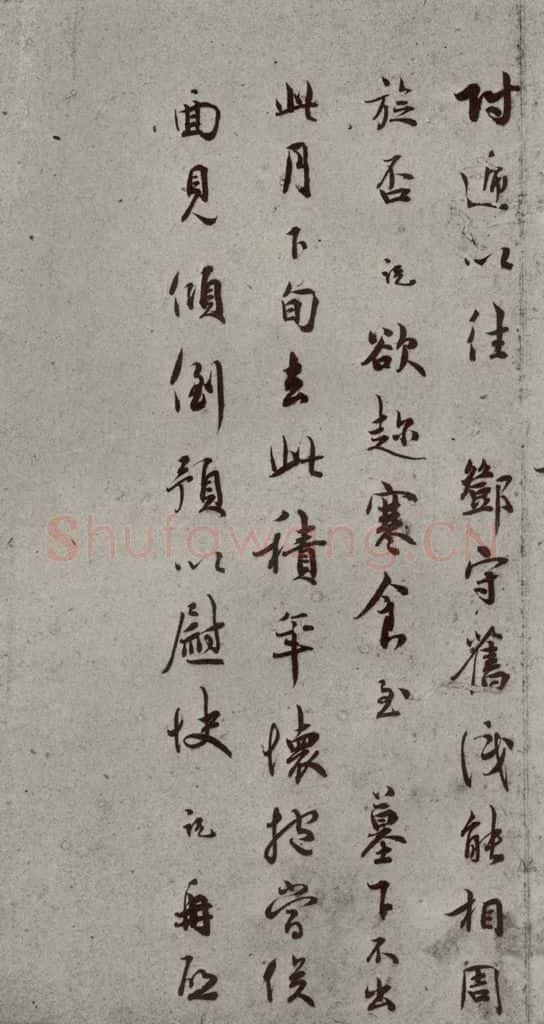 附遞以往 鄧守舊識能相周
旋否説欲趂寒食至 墓下不出
此月下旬去此積年懷抱當俟
面見傾倒預以慰快説再啓
ShufaWang.CN